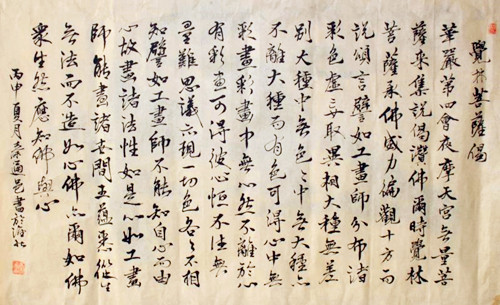 覺林菩薩偈
華嚴第四會夜摩天宮無量菩
薩來集說偈讚佛爾時覺林
菩薩承佛威力徧觀十方而
說頌言譬如工畫師分布諸
彩色虛妄取異相大種無差
別大種中無色色中無大種亦
不離大種而有色可得心中無
彩畫彩畫中無心然不離於心
有彩畫可得彼心恒不住無
量難思議示現一切色各各不相
知譬如工畫師不能知自心而由
心故畫諸法性如是心如工畫
師能畫諸世間五蘊悉從生
無法而不造如心佛亦爾如佛
眾生然應知佛與心
丙申夏月書於北